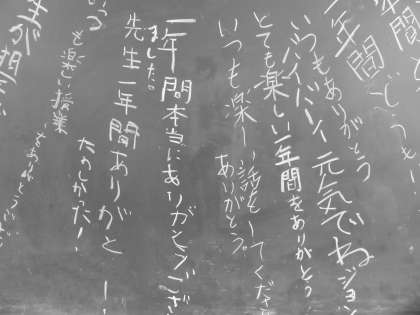 年間
年間
いつも
いつもありがとう
バイバイ！元気でねジョン
とても楽しい一年間をありがとう
いつも楽しい話をしてくださ
ありがとう。
一年間本当にありがとうござ
ました。
先生一年間ありがと
たのしかった！
も楽しい授業
をありがとうござ